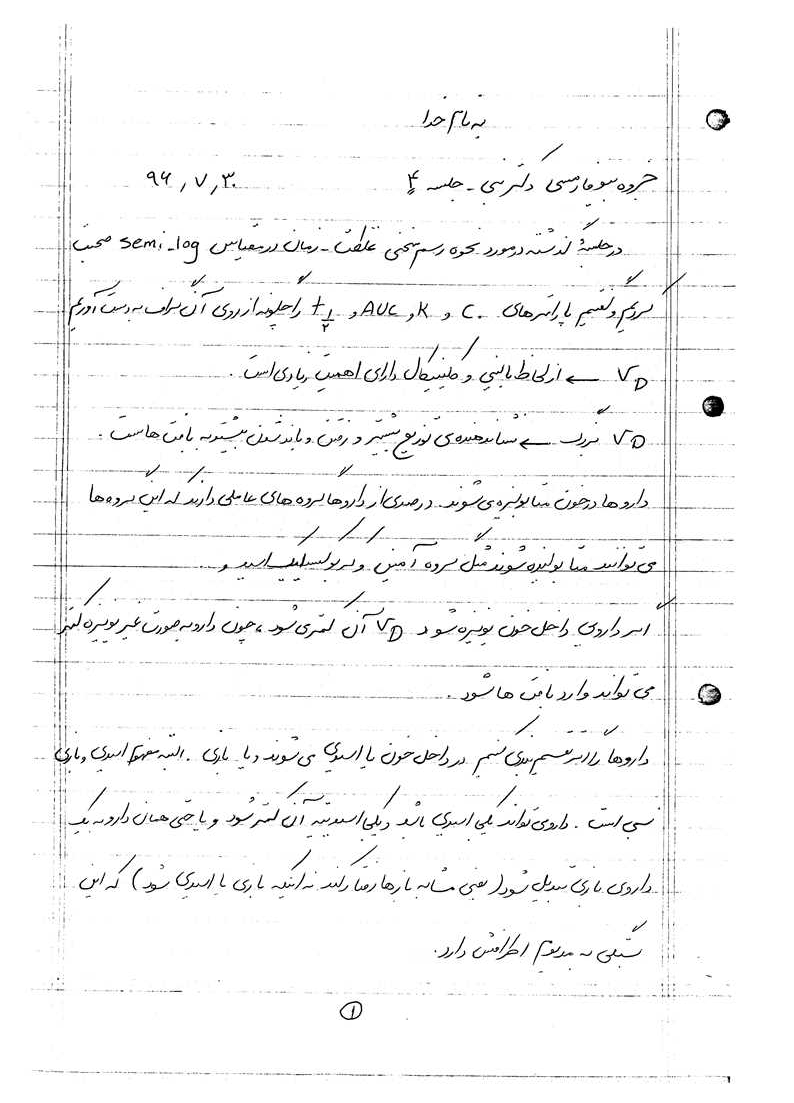 به نام خدا
جزوه بیوفارمسی دکتر نبی - جلسه ۴ ۹۶,۷,۳۰
در جلسه گذشته در مورد نحوه رسم منحنی غلظت - زمان در مقیاس semi-log صحبت
کردیم و گفتیم پارامترهای C. و K و AUC و t½ را چگونه از روی آن گراف به دست آوریم
VD ← از لحاظ بالینی و کلینیکال دارای اهمیت زیادی است .
VD بزرگ ← نشاندهنده ی توزیع بیشتر و رفتن و باند شدن بیشتر به بافت هاست .
داروها در خون متابولیزه می شوند. درصدی از داروها گروه های عاملی دارند که این گروه ها
می توانند متابولیزه شوند مثل گروه آمین و کربوکسیلیک اسید و
اگر داروی داخل خون یونیزه شود VD آن کمتر می شود ، چون دارو به صورت غیر یونیزه کمتر
می تواند وارد بافت ها شود .
داروها را اگر تقسیم بندی کنیم در داخل خون یا اسیدی می شوند و یا بازی . البته مفهوم اسیدی و بازی
نسبی است . داروی تواند یکی اسیدی باشد و یکی اسیدیته آن کمتر شود و یا حتی همان دارو به یک
داروی بازی تبدیل شود ( یعنی مشابه بازها رفتار کند نه اینکه بازی یا اسیدی شود ) که این
بستگی به مدیوم اطرافش دارد.
۱